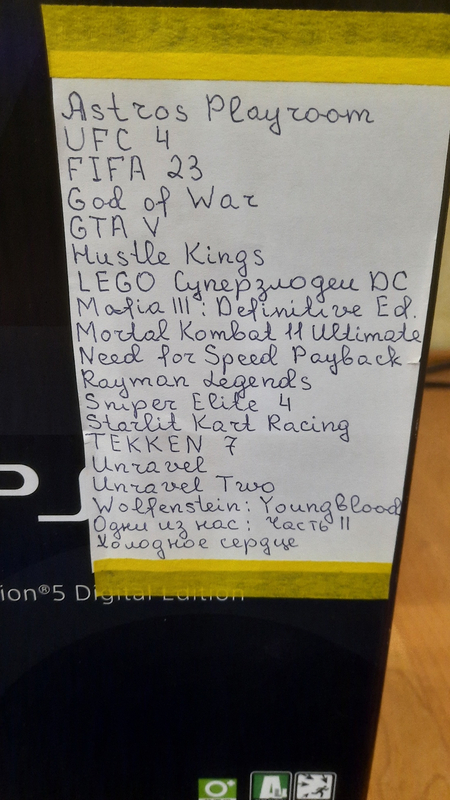 Astros Playroom
UFC 4
FIFA 23
God of War
GTA V
Hustle Kings
LEGO Суперзлодеи DC
Mafia III: Definitive Ed.
Mortal Kombat 11 Ultimate
Need for Speed Payback
Rayman Legends
Sniper Elite 4
Starlit Kart Racing
TEKKEN 7
Unravel
Unravel Two
Wolfenstein: YoungBlood
Одни из нас: Часть II
Холодное сердце
PS
ion®5 Digital Edition